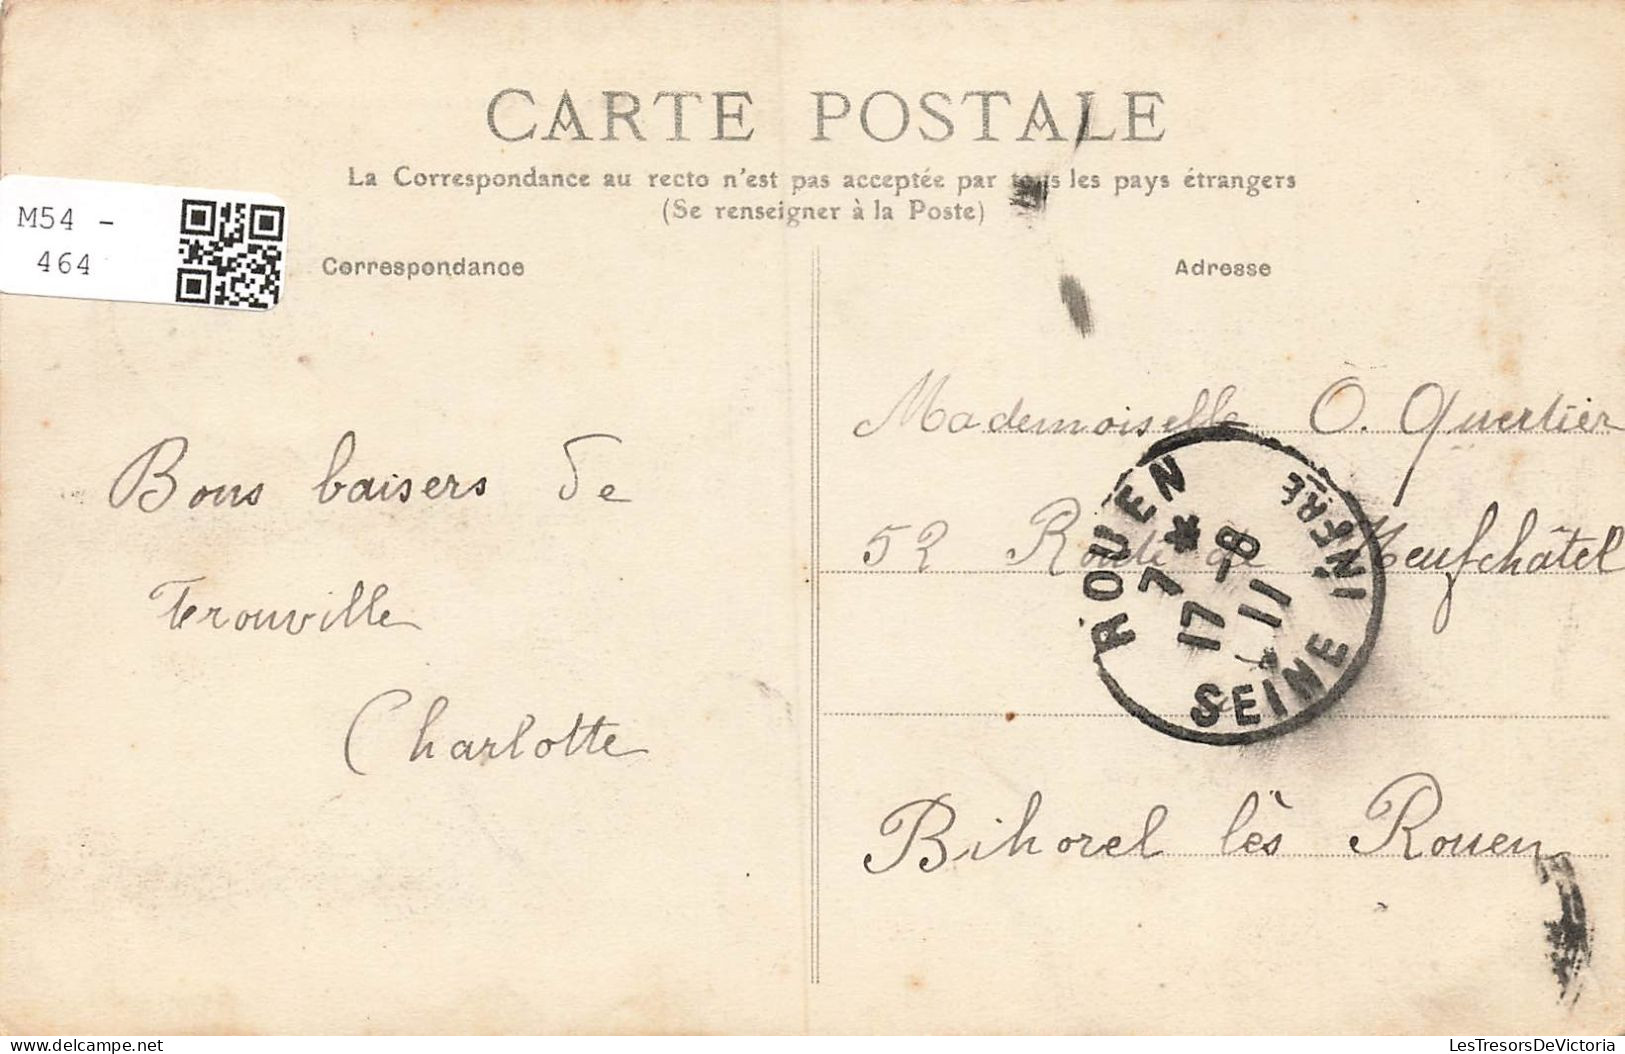 CARTE POSTALE
La Correspondance au recto n'est pas acceptée par tous les pays étrangers
(Se renseigner à la Poste)
M54 -
464
Correspondance
Adresse
Bons baisers de
Trouville
Charlotte
Mademoiselle O. Quertier
52 Route de Neufchâtel
Bihorel lès Rouen
ROUEN
7 *
17 -8
11
SEINE INFRE
LesTresorsDeVictoria